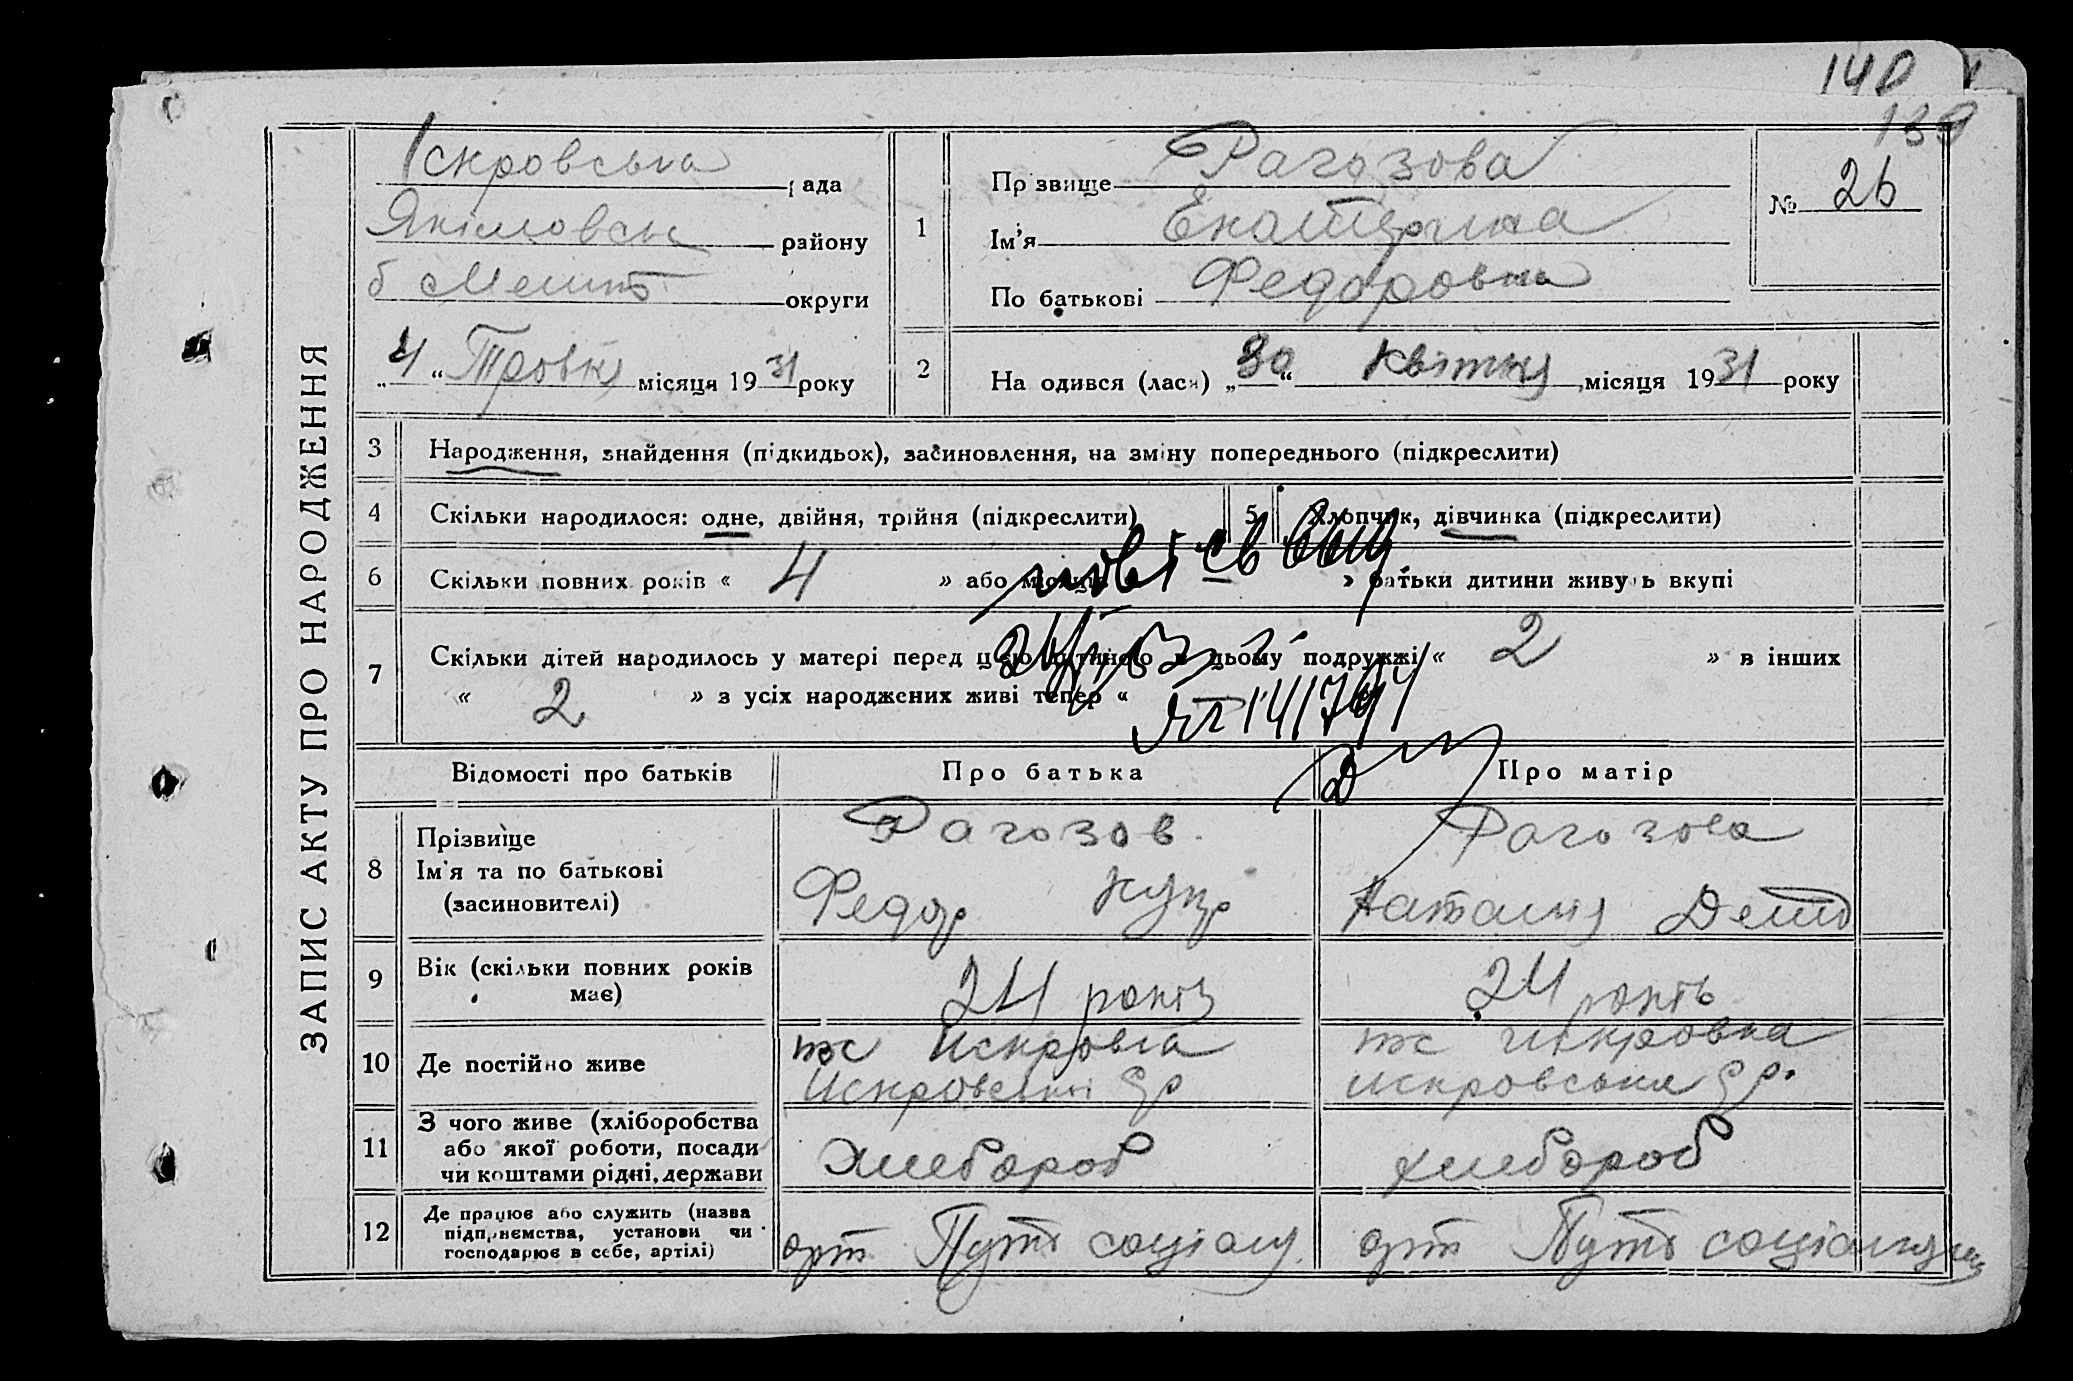 140
139
ЗАПИС АКТУ ПРО НАРОДЖЕННЯ
Іскровська рада
Якімовськ району
б Меліт округи
„4“ Травня місяця 1931 року
1
Прізвище Рагозова
Ім'я Екатерина
По батькові Федоровна
№ 26
2
На одився (лася) „30“ Квітня місяця 1931 року
3 Народження, знайдення (підкидьок), засиновлення, на зміну попереднього (підкреслити)
4 Скільки народилося: одне, двійня, трійня (підкреслити) 5 Хлопчик, дівчинка (підкреслити)
6 Скільки повних років « 4 » або місяців » батьки дитини живуть вкупі
7 Скільки дітей народилось у матері перед цією дитиною в цьому подружжі « 2 » в інших
« 2 » з усіх народжених живі тепер «
Відомості про батьків Про батька Про матір
8 Прізвище
Ім'я та по батькові
(засиновителі)
Рагозов
Федор
Рагозова
Наталия
9 Вік (скільки повних років
має)
24
24
10 Де постійно живе
Искровка
Искровка
11 З чого живе (хліборобства
або якої роботи, посади
чи коштами рідні, держави
хлебороб
хлебороб
12 Де працює або служить (назва
підприємства, установи чи
господарює в себе, артілі)
арт Путь соціалу
арт Путь